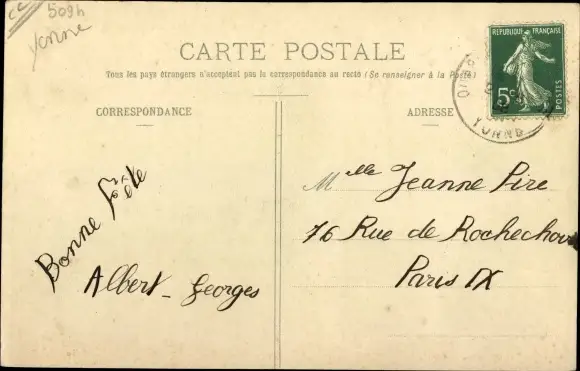 509h
Yonne
CARTE POSTALE
Tous les pays étrangers n'acceptent pas la correspondance au recto (Se renseigner à la Poste)
CORRESPONDANCE
ADRESSE
REPUBLIQUE FRANÇAISE
5c
POSTES
YONNE
Bonne fête
Albert - Georges
Melle Jeanne Pire
76 Rue de Rochechou
Paris IX